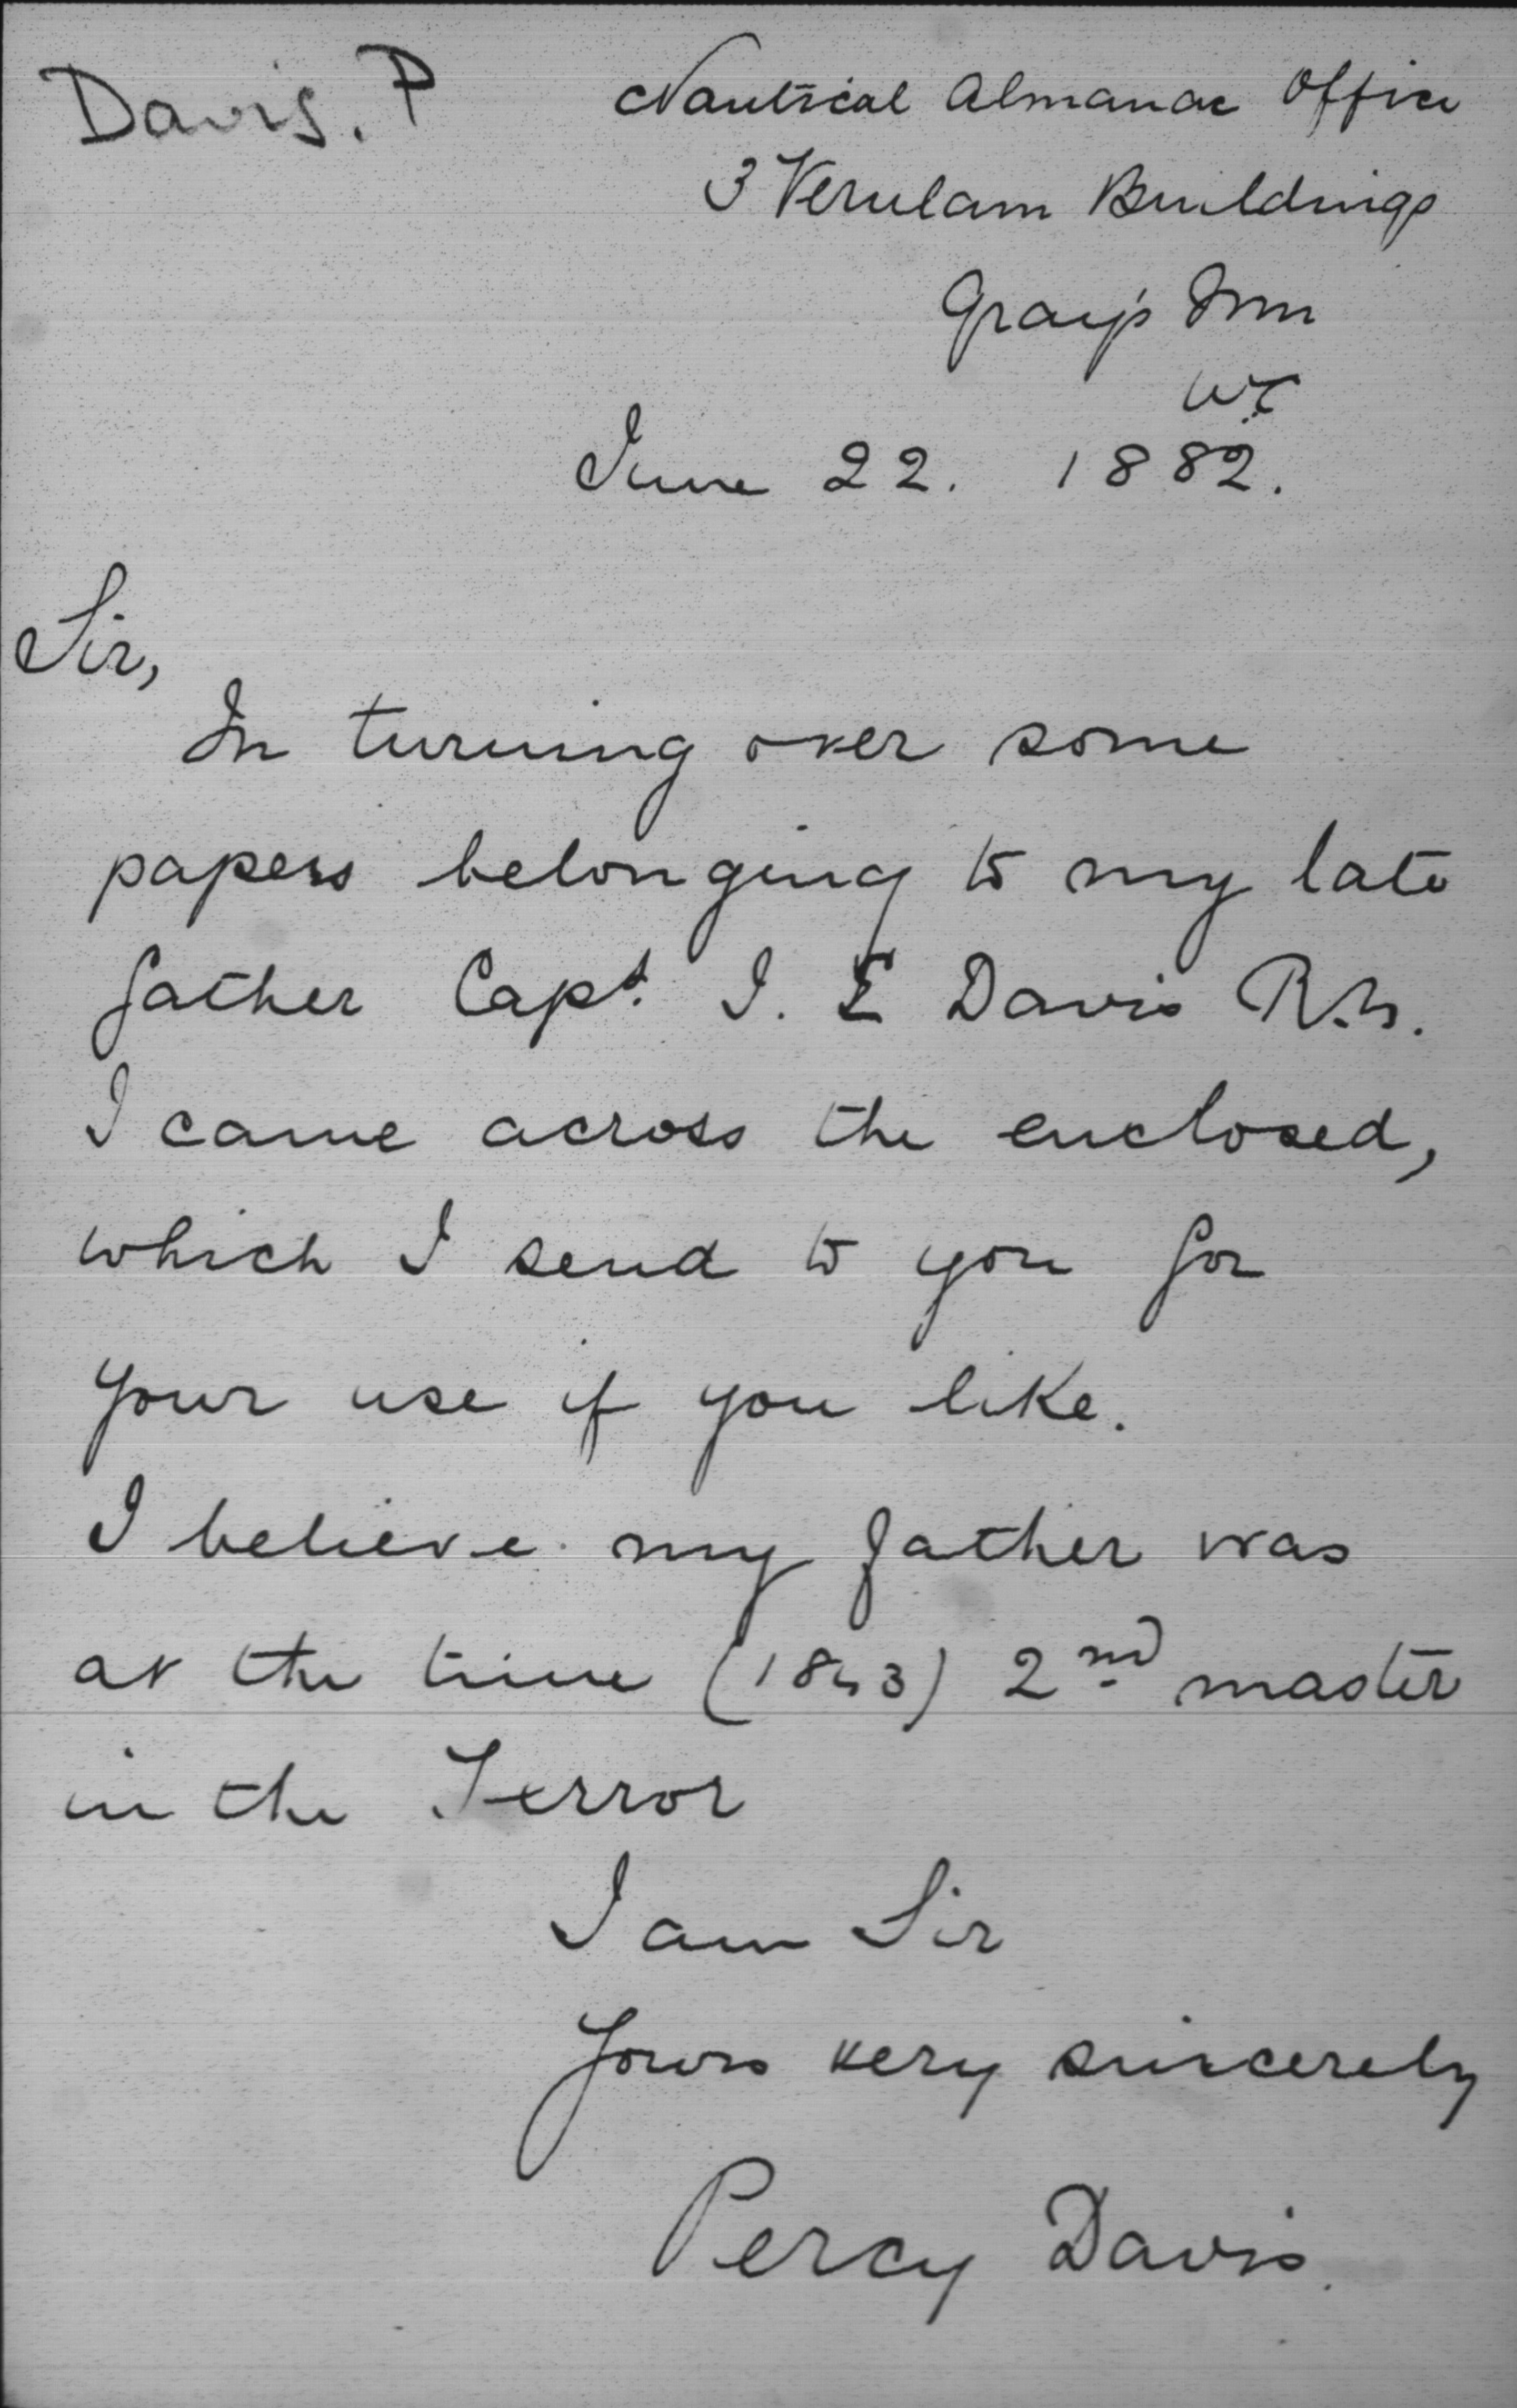 Davis. P
Nautical Almanac Office
3 Verulam Buildings
Gray's Inn
WC
June 22. 1882.
Sir,
In turning over some
papers belonging to my late
father Capt. J. E Davis R.N.
I came across the enclosed,
which I send to you for
your use if you like.
I believe my father was
at the time (1843) 2nd master
in the Terror
I am Sir
Yours very sincerely
Percy Davis.